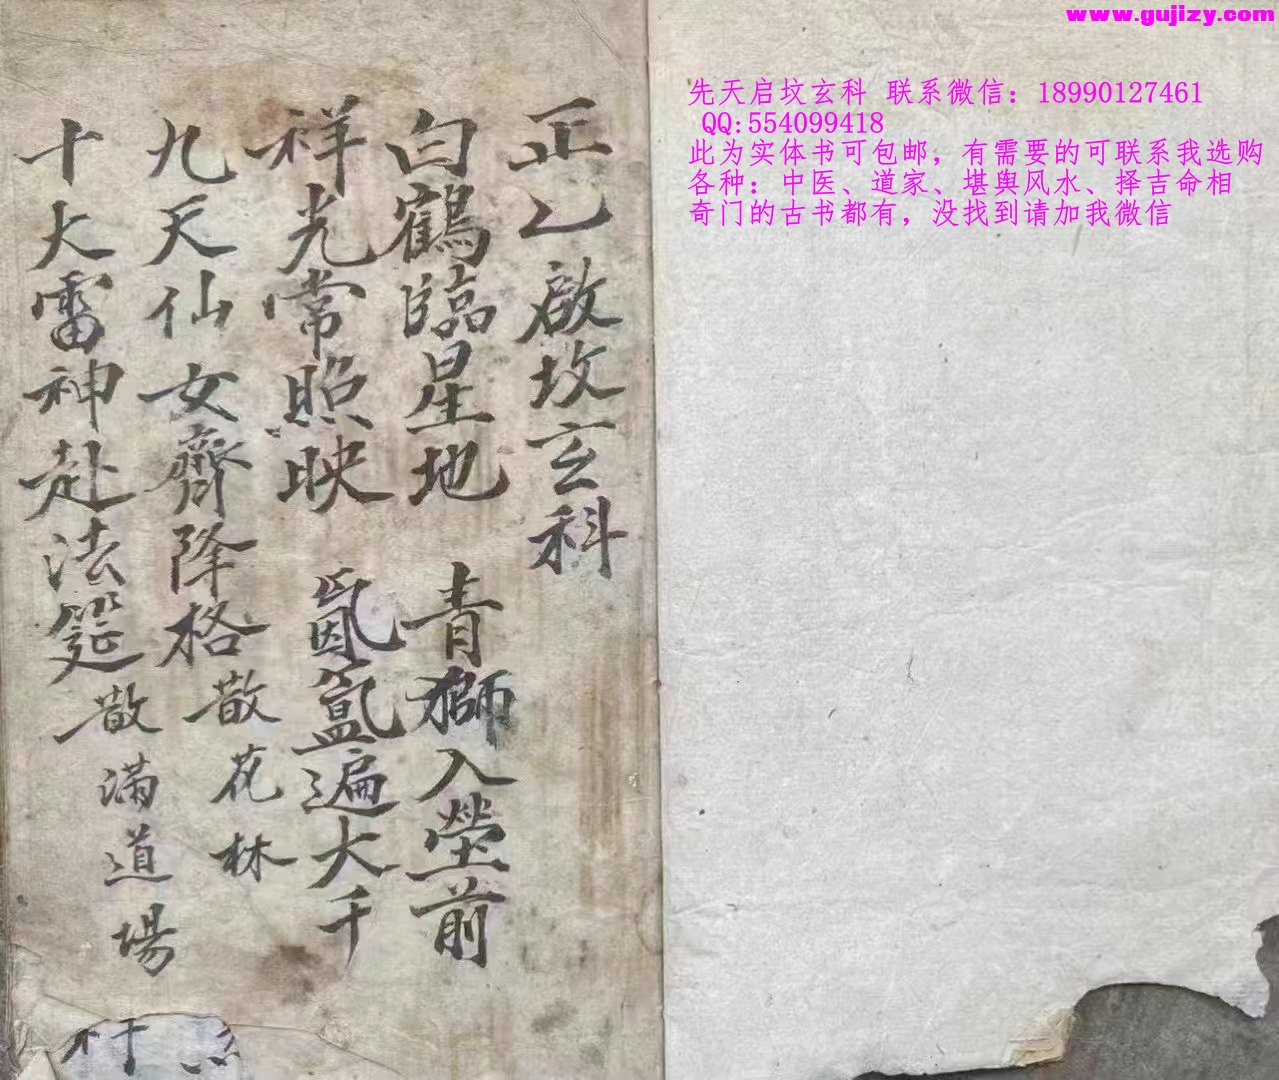 www.gujizy.com
先天启坟玄科 联系微信：18990127461
QQ:554099418
此为实体书可包邮，有需要的可联系我选购
各种：中医、道家、堪舆风水、择吉命相
奇门的古书都有，没找到请加我微信
正乙啟坟玄科
白鶴臨星地 青獅入塋前
祥光常照映 氤氳遍大千
九天仙女齊降格 散花林
十大雷神赴法筵 散满道場